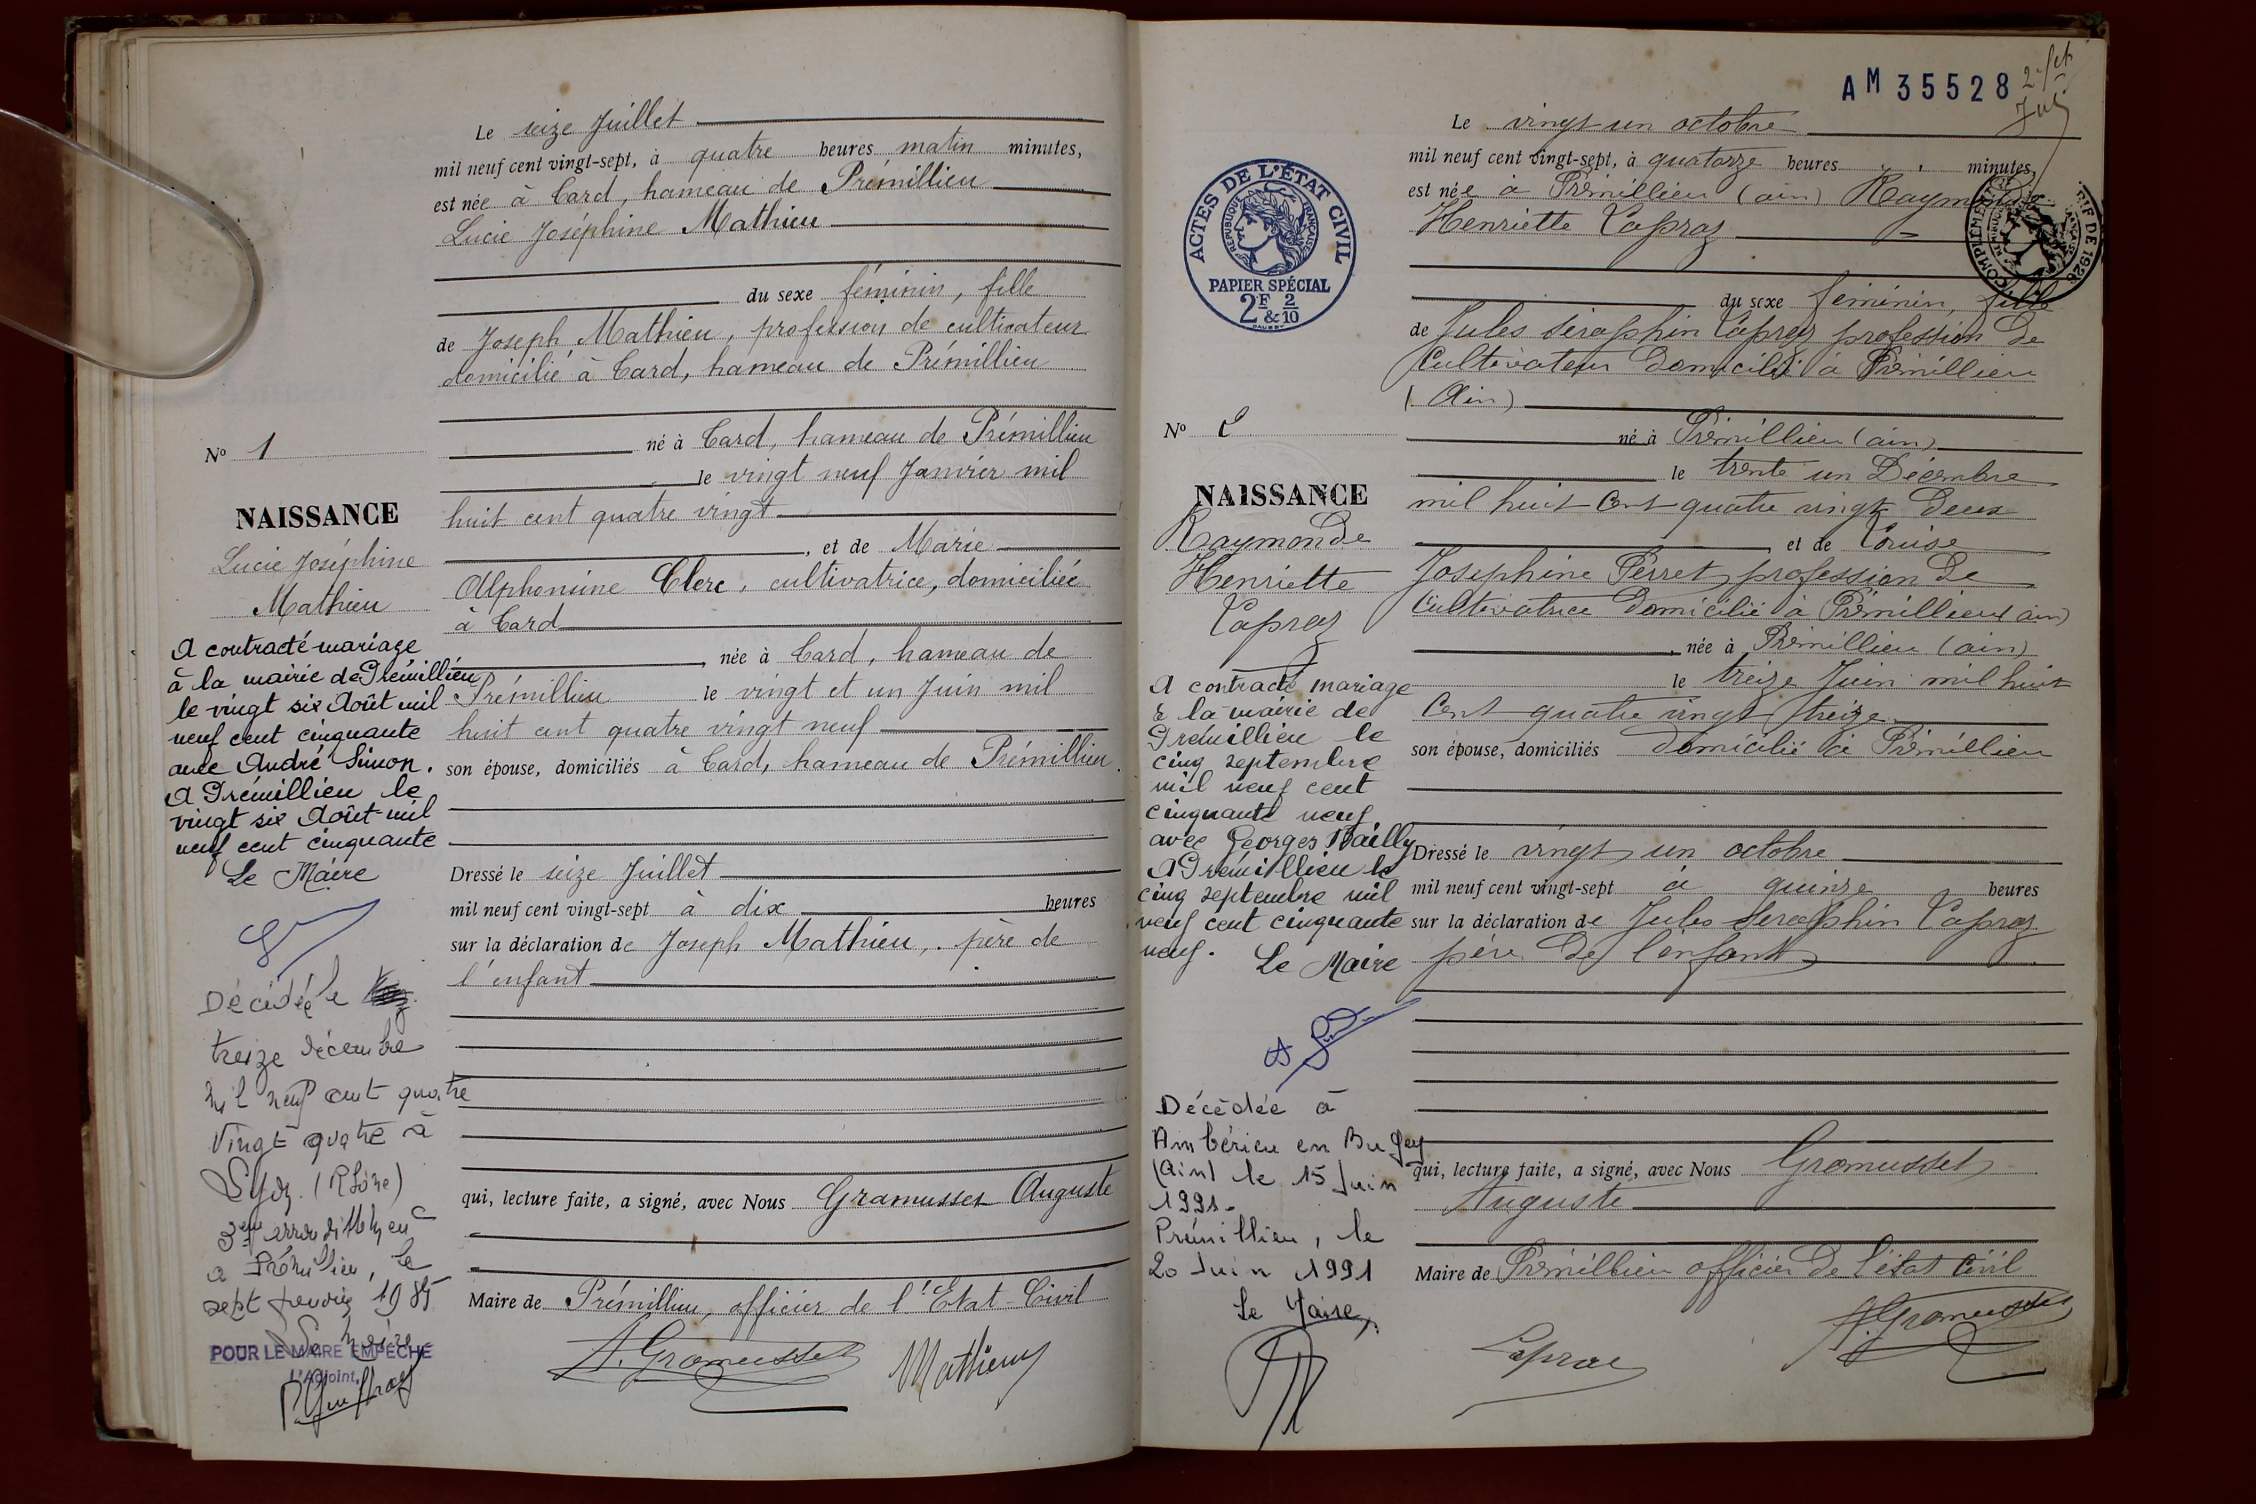 Le seize Juillet
mil neuf cent vingt-sept, à quatre heures matin minutes,
est née à Card, hameau de Prémillieu
Lucie Joséphine Mathieu
du sexe féminin, fille
de Joseph Mathieu, profession de cultivateur
domicilié à Card, hameau de Prémillieu
né à Card, hameau de Prémillieu
le vingt neuf Janvier mil
huit cent quatre vingt
, et de Marie
Alphonsine Clerc, cultivatrice, domiciliée
à Card
, née à Card, hameau de
Prémillieu le vingt et un Juin mil
huit cent quatre vingt neuf
son épouse, domiciliés à Card, hameau de Prémillieu.
Dressé le seize Juillet
mil neuf cent vingt-sept à dix heures
sur la déclaration de Joseph Mathieu, père de
l'enfant
qui, lecture faite, a signé, avec Nous Gramusset Auguste
Maire de Prémillieu, officier de l'Etat-Civil
A. Gramusset Mathieu
No 1
NAISSANCE
Lucie Joséphine
Mathieu
A contracté mariage
à la mairie de Prémillieu
le vingt six Août mil
neuf cent cinquante
avec André Simon.
A Prémillieu le
vingt six Août mil
neuf cent cinquante
Le Maire
Décédée le
treize décembre
mil neuf cent quatre
vingt quatre à
Lyon. (Rhône)
3ème arrondissement
a Prémillieu, le
sept janvier 1985
Le Maire
POUR LE MAIRE EMPÊCHÉ
L'Adjoint,
AM 35528
Le vingt un octobre
mil neuf cent vingt-sept, à quatorze heures minutes,
est née à Prémillieu (ain) Raymonde
Henriette Lapraz
du sexe féminin, fille
de Jules Séraphin Lapraz profession de
Cultivateur domicilié à Prémillieu
(Ain)
né à Prémillieu (ain)
le trente un Décembre
mil huit cent quatre vingt deux
, et de Louise
Josephine Perret profession de
Cultivatrice domicilié à Prémillieu (ain)
, née à Prémillieu (ain)
le treize Juin mil huit
cent quatre vingt treize
son épouse, domiciliés domicilié à Prémillieu
Dressé le vingt un octobre
mil neuf cent vingt-sept à quinze heures
sur la déclaration de Jules Séraphin Lapraz
père de l'enfant
qui, lecture faite, a signé, avec Nous Gramusset
Auguste
Maire de Prémillieu officier de l'état civil
Lapraz A. Gramusset
ACTES DE L'ÉTAT CIVIL
RÉPUBLIQUE FRANÇAISE
PAPIER SPÉCIAL
2F & 2/10
No 2
NAISSANCE
Raymonde
Henriette
Lapraz
A contracté mariage
à la mairie de
Prémillieu le
cinq septembre
mil neuf cent
cinquante neuf
avec Georges Bailly
A Prémillieu le
cinq septembre mil
neuf cent cinquante
neuf.
Le Maire
Décédée à
Ambérieu en Bugey
(Ain) le 15 Juin
1991.
Prémillieu, le
20 Juin 1991
Le Maire,